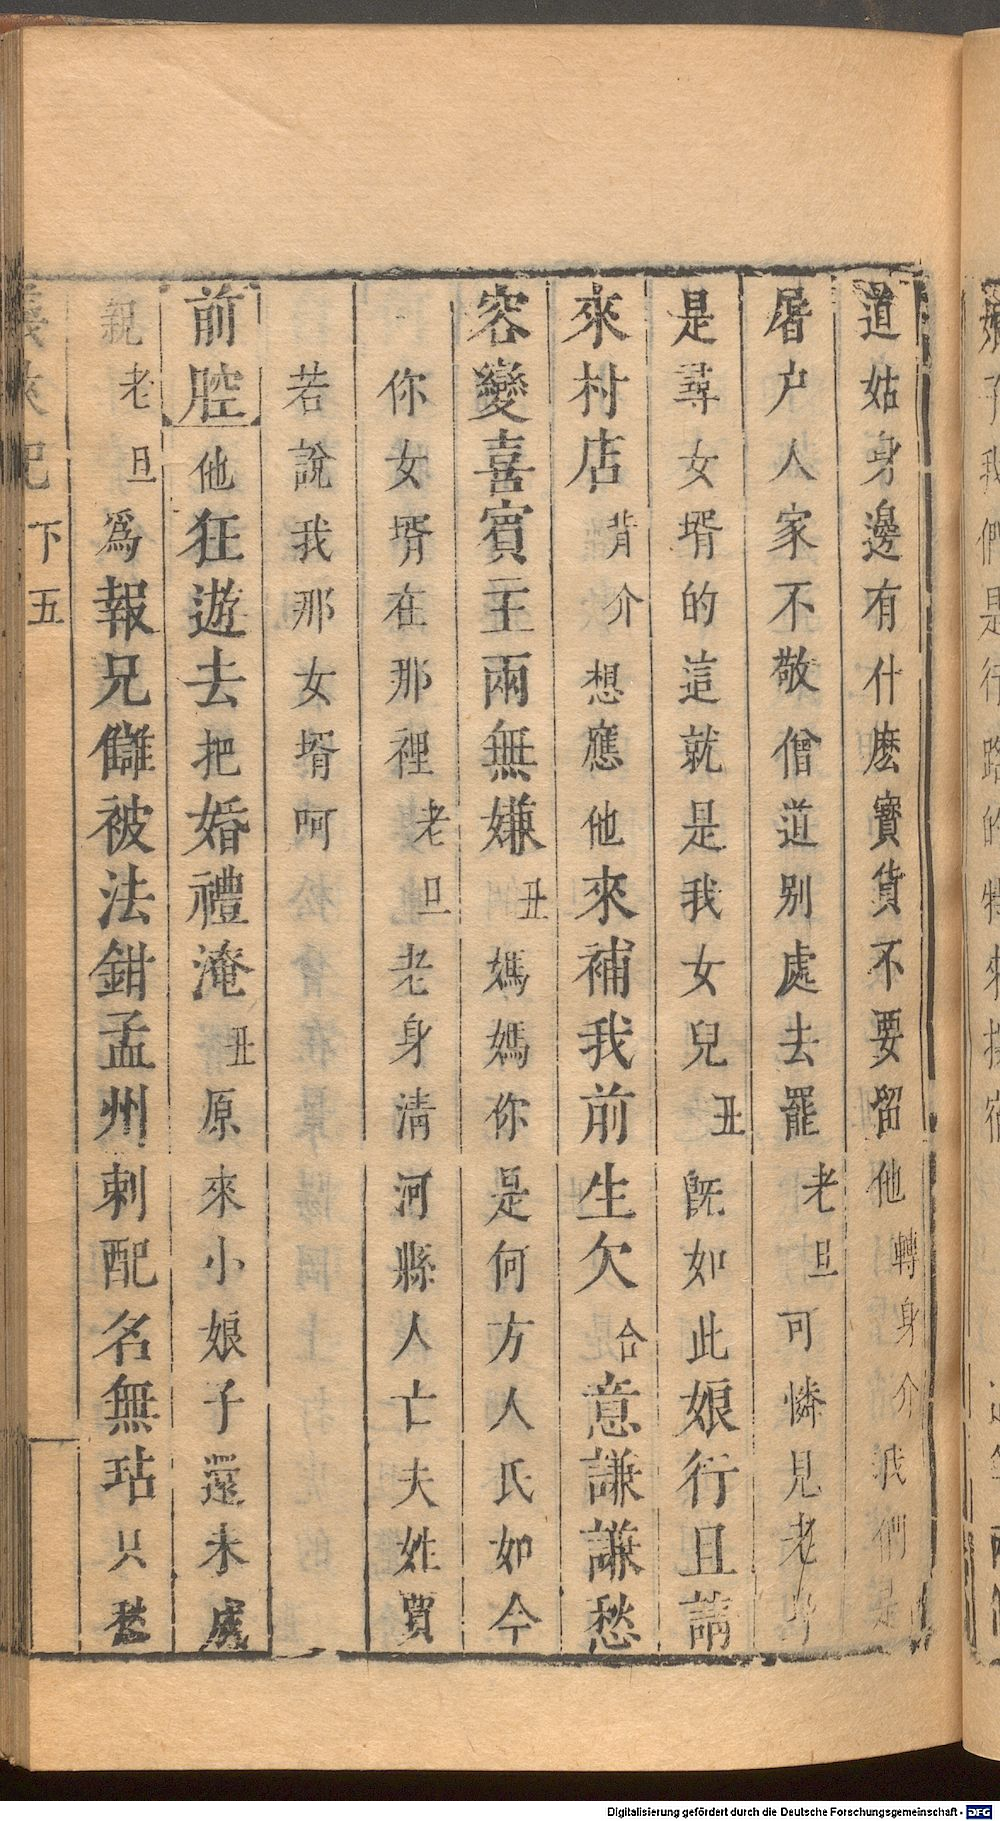 道姑身邊有什麽寶貨不要留他轉身介我們是
屠户人家不敬僧道别處去罷老旦可憐見老身
是尋女壻的這就是我女兒丑旣如此娘行且請
來村店背介想應他來補我前生欠合意謙謙愁
容變喜賓主兩無嫌丑媽媽你是何方人氏如今
你女壻在那裡老旦老身清河縣人亡夫姓賈
若說我那女壻呵
前腔他狂遊去把婚禮淹丑原來小娘子還未成
親老旦爲報兄讎被法鉗孟州刺配名無玷只愁
義俠記 下 五
們是行路的特來
Digitalisierung gefördert durch die Deutsche Forschungsgemeinschaft - DFG